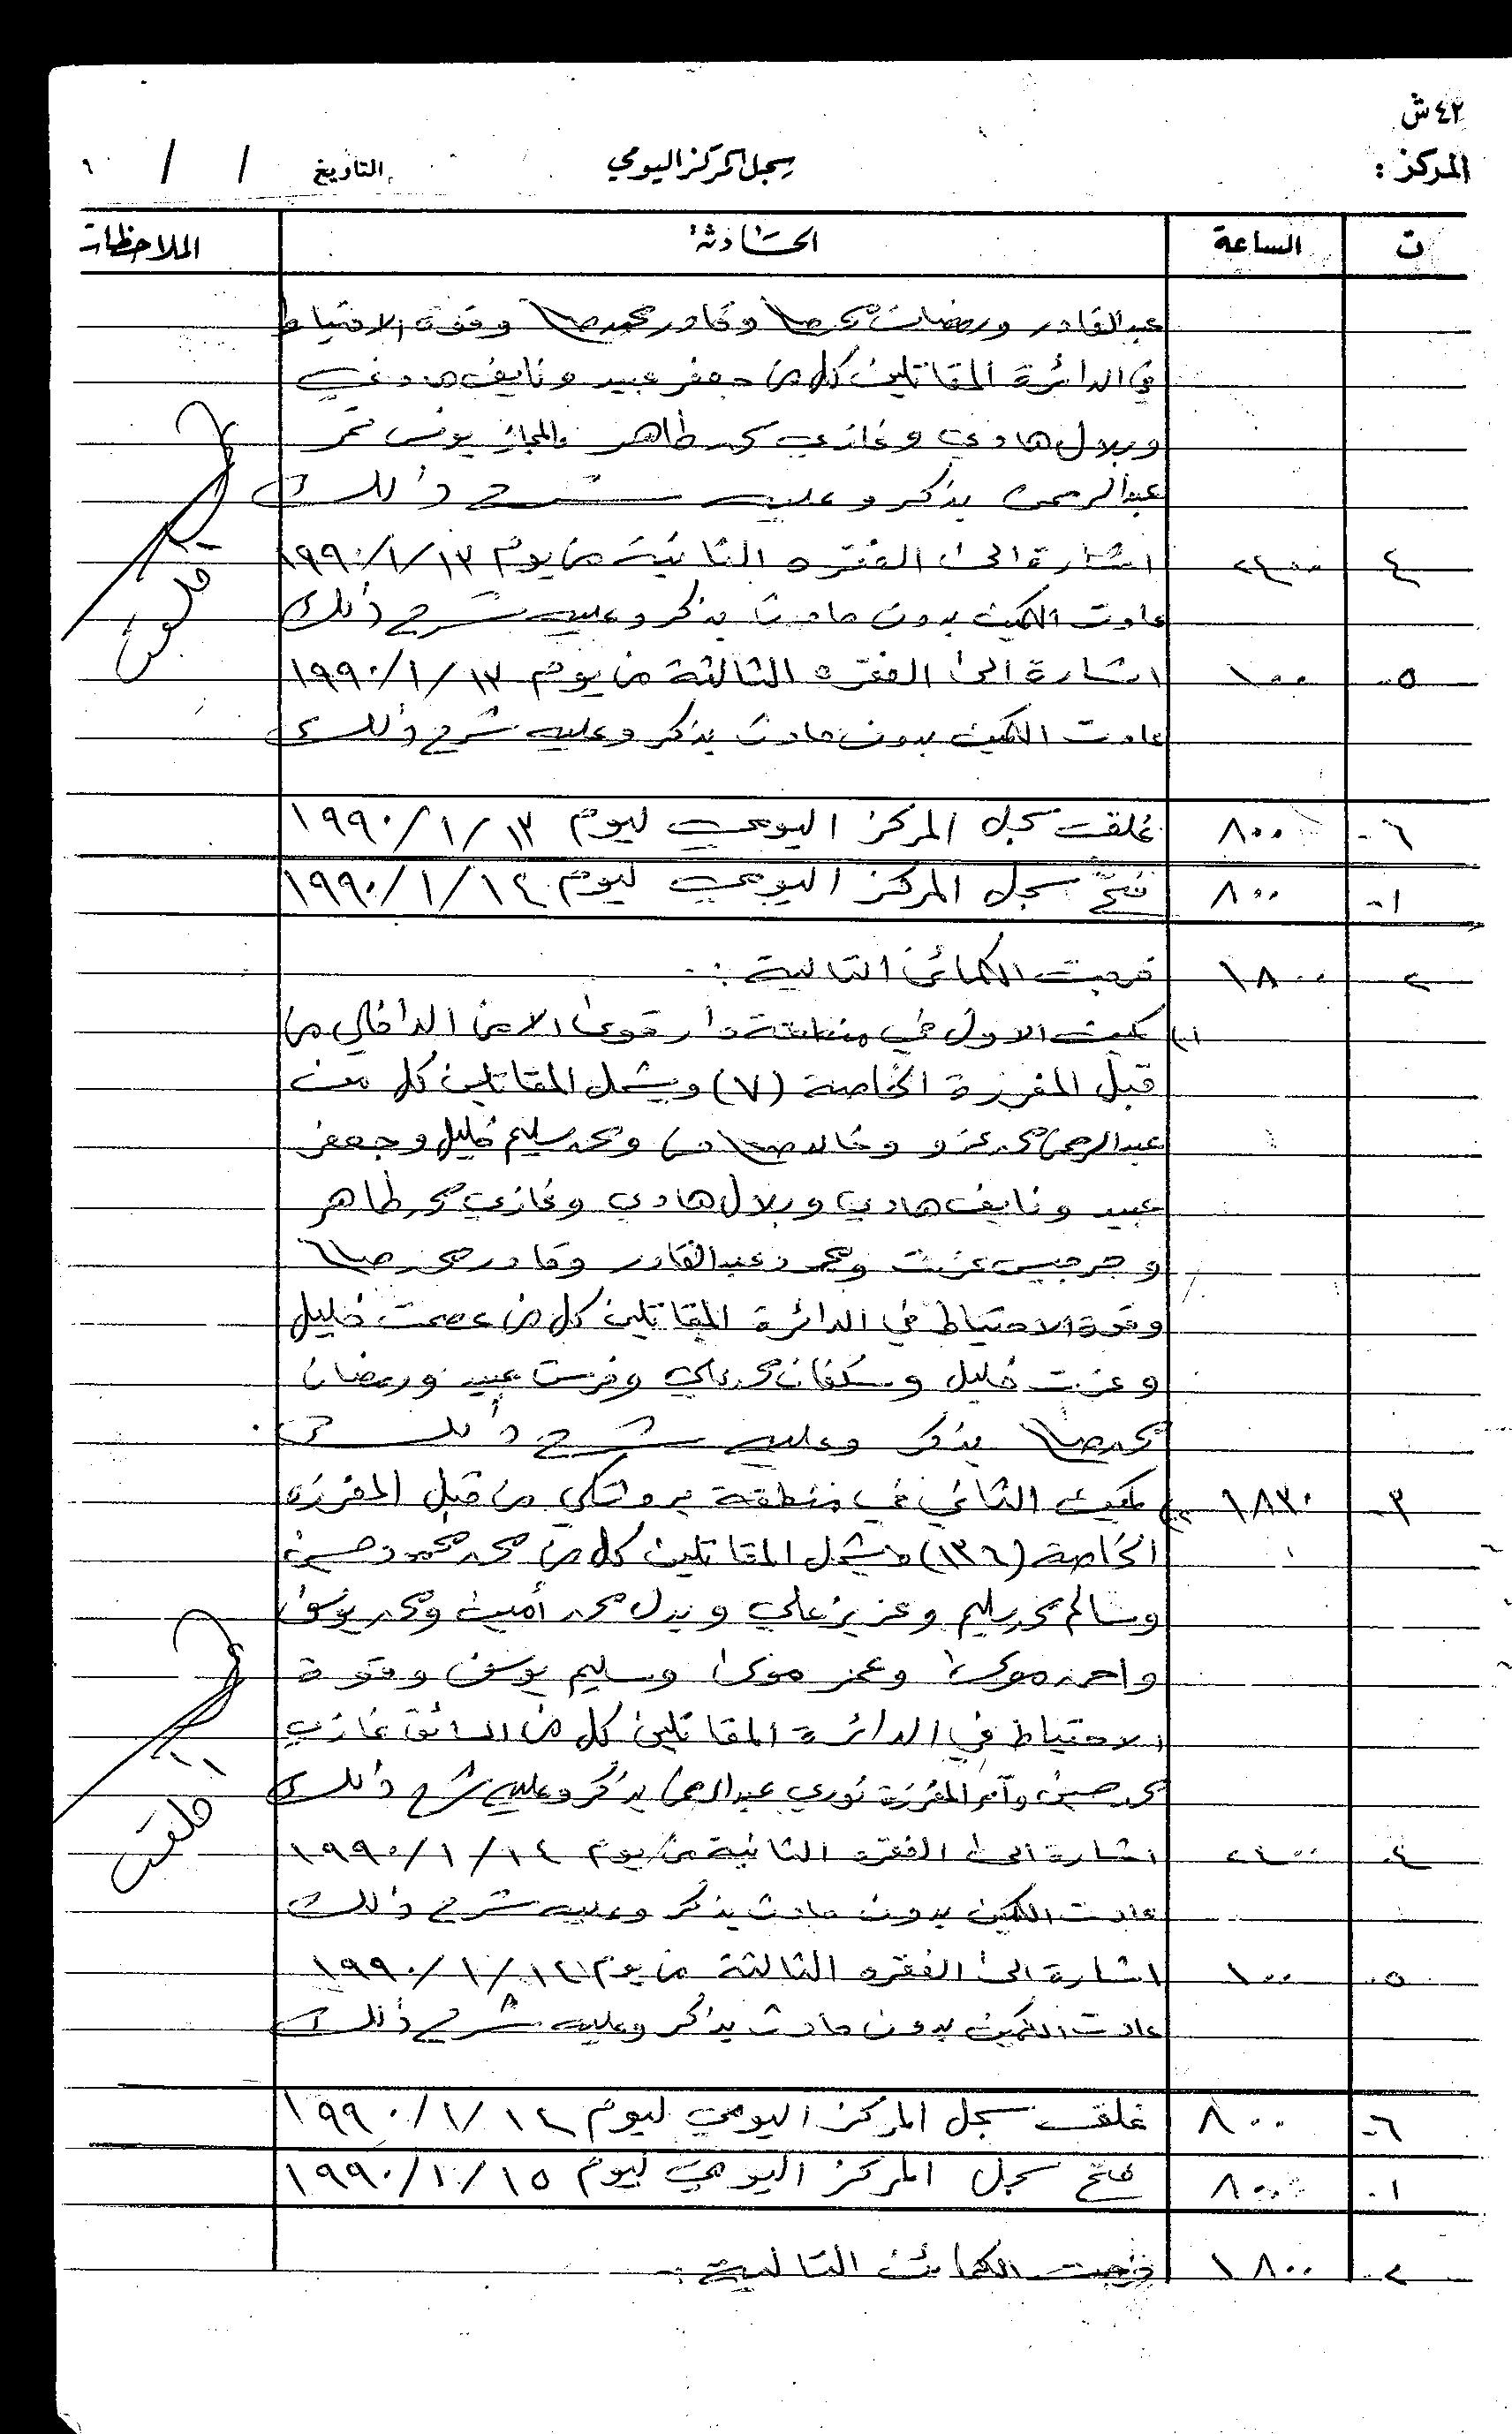 ٤٢ ش
المركز :
سجل المركز اليومي
التاريخ / /
ت الساعة الحادثة الملاحظات
عبدالقادر ورمضان محمد صالح وقادر محمد صالح وقوة الاحتياط
في الدائرة المقاتلين كل من جعفر عبيد ونايف هادي
وبلال هادي وغازي محمد طاهر والمجاز يونس
عبدالرحمن يذكر وعليه شرح ذلك
٤ ٢٤٠٠ اشارة الى الفقره الثانية من يوم ١٣/١/١٩٩٠
عادت الكمين بدون حادث يذكر وعليه شرح ذلك
٥- ١٠٠ اشارة الى الفقره الثالثة من يوم ١٣/١/١٩٩٠
عادت الكمين بدون حادث يذكر وعليه شرح ذلك
٦- ٨٠٠ غلقت سجل المركز اليومي ليوم ١٣/١/١٩٩٠
١- ٨٠٠ فتح سجل المركز اليومي ليوم ١٤/١/١٩٩٠
٢- ١٨٠٠ خرجت الكمائن التالية :-
١) كمين الاول في منطقة دار قوى الامن الداخلي من
قبل المفرزة الخاصة (٧) ويشمل المقاتلين كل من
عبدالرحمن محمد عزو وخالد ومحمد سليم خليل وجعفر
عبيد ونايف هادي وبلال هادي وغازي محمد طاهر
وجرجيس عزت ومحمود عبدالقادر وقادر محمد صالح
وقوة الاحتياط في الدائرة المقاتلين كل من عصمت خليل
وعزت خليل وسكفان محمد علي وفرست عبيد ورمضان
محمد صالح يذكر وعليه شرح ذلك
٣- ١٨٣٠ ٢) كمين الثاني في منطقة من قبل المفرزه
الخاصة (١٣٦) ويشمل المقاتلين كل من محمد محمود حسين
وسالم محمد سليم وعزيز علي وبدل محمد أمين ومحمد يوسف
واحمد موسى وعمر موسى وسليم يوسف وقوة
الاحتياط في الدائرة المقاتلين كل من السائق غازي
محمد حسين وآمر المفرزة نوري عبدالرحمن يذكر وعليه شرح ذلك
٤- ٢٤٠٠ اشارة الى الفقره الثانية من يوم ١٤/١/١٩٩٠
عادت الكمين بدون حادث يذكر وعليه شرح ذلك
٥- ١٠٠ اشارة الى الفقره الثالثة من يوم ١٤/١/١٩٩٠
عادت الكمين بدون حادث يذكر وعليه شرح ذلك
٦- ٨٠٠ غلقت سجل المركز اليومي ليوم ١٤/١/١٩٩٠
١- ٨٠٠ فتح سجل المركز اليومي ليوم ١٥/١/١٩٩٠
٢- ١٨٠٠ خرجت الكمائن التالية :-